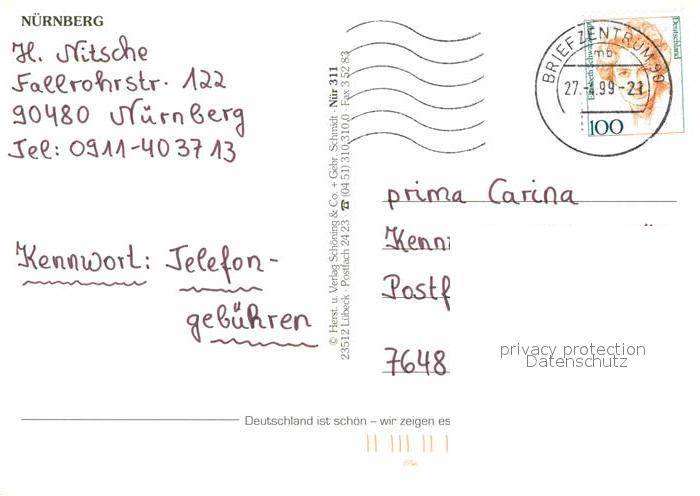 NÜRNBERG
H. Nitsche
Fallrohrstr. 122
90480 Nürnberg
Tel: 0911-403713
Kennwort: Telefon-
gebühren
© Herst. u. Verlag Schöning & Co. + Gebr. Schmidt · Nür 311
23512 Lübeck · Postfach 24 23 · ☎ (04 51) 310 310,0 · Fax 3 52 83
BRIEFZENTRUM 90
mb
27. .99-21
Deutschland
Elisabeth
100
prima Carina
Kenn
Postf
7648
privacy protection
Datenschutz
Deutschland ist schön – wir zeigen es